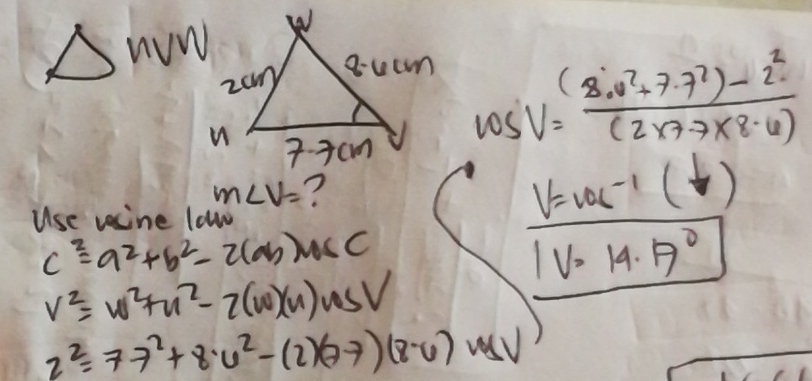 △ UVW
W
2cm
8.6cm
U
V
7.7cm
m<V=?
Use cosine law
c²=a²+b²-2(ab)cos C
v²=w²+u²-2(w)(u)cosV
2²=7.7²+8.6²-(2)(7.7)(8.6) cosV
cos V= (8.6²+7.7²)-2²
(2×7.7×8.6)
V=cos⁻¹ (↓)
V= 14.17°